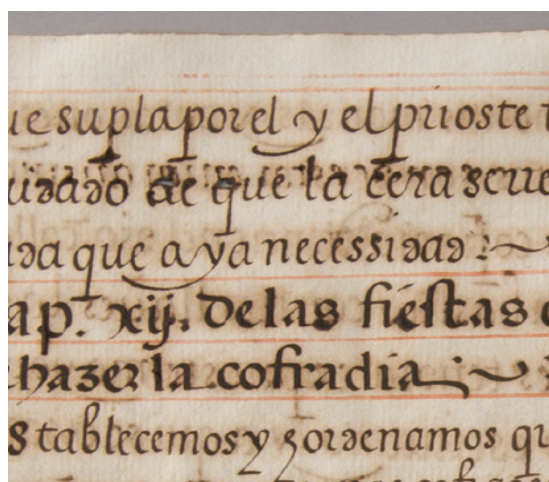 ue supla por el y el prioste
uidado de que la cera se
ada que aya necessidad:~
ap. xij. de las fiestas
hazer la cofradia.~
stablecemos y hordenamos qu